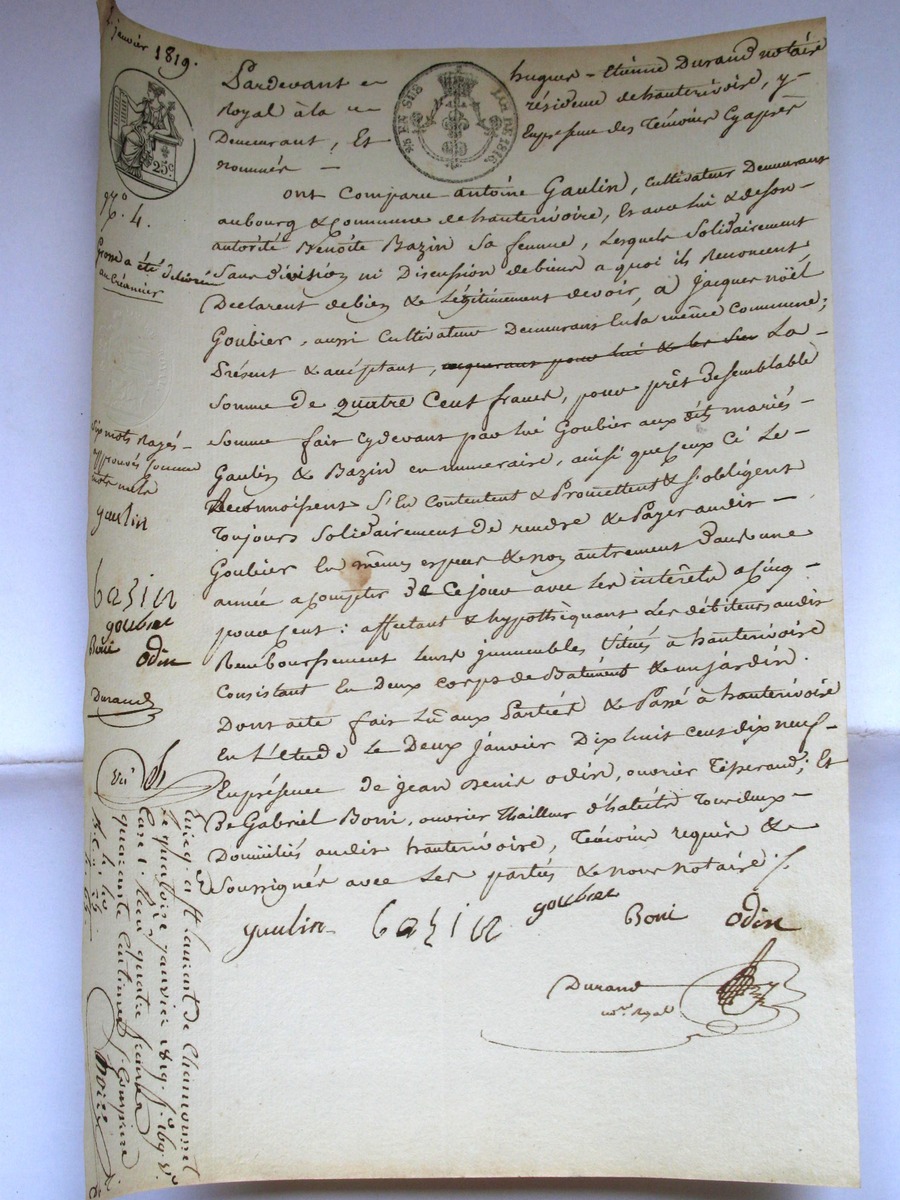 janvier 1819.
25c
No. 4.
Grosse a été délivrée
au Créancier
Six mots rayés
approuvés comme
nuls
gaulin
bazin
goubier
Boni odin
Durand
Pardevant hugues-etienne Durand notaire
Royal à la résidence de hauterivoire, y
Demeurant, Et En presence des Témoins Cyaprès
nommés
ont comparu antoine Gaulin, Cultivateur Demeurant
aubourg & Commune de hauterivoire, Et avec lui & de son
autorité Benoite Bazin Sa femme, Lesquels Solidairement
Sans division ni Discussion de biens a quoi ils Renoncent
Declarent debien & Légitimement devoir, a Jacques noël
Goubier, aussi Cultivateur Demeurant En la même Commune;
Présent & acceptant, acquerant pour lui & les siens La
Somme de quatre Cent francs, pour prêt de semblable
Somme fait cydevant par lui Goubier aux dits mariés
Gaulin & Bazin en numeraire, ainsi que Ceux Ci Le
Reconnoissent S'En Contentent & Promettent & S'obligent
Toujours Solidairement de rendre & Payer audit
Goubier En mêmes especes & non autrement Dans une
année a compter de Ce jour avec les intérêts a Cinq
pour Cent: affectant & hypothèquant Les débiteurs audit
Remboursement leurs immeubles Situés à hauterivoire
Consistant En Deux corps de Batiment & un jardin.
Dont acte fait Lu aux Parties & Passé à hauterivoire
En L'Etude Le Deux janvier Dix huit Cent dix neuf
En présence de jean Denis odin, ouvrier Tisserand; Et
De Gabriel Boni, ouvrier Tailleur d'habits Tous deux
Domiciliés audit hauterivoire, Témoins requis &
Soussignés avec Les parties & nous notaire
gaulin bazin goubier Boni odin
Durand
nore Royal
Enreg. a St laurent de Chamousset
le quatorze janvier 1819. fo 169. Vo
Case 1. Reçu quatre francs
quarante Centimes Sn Comprise